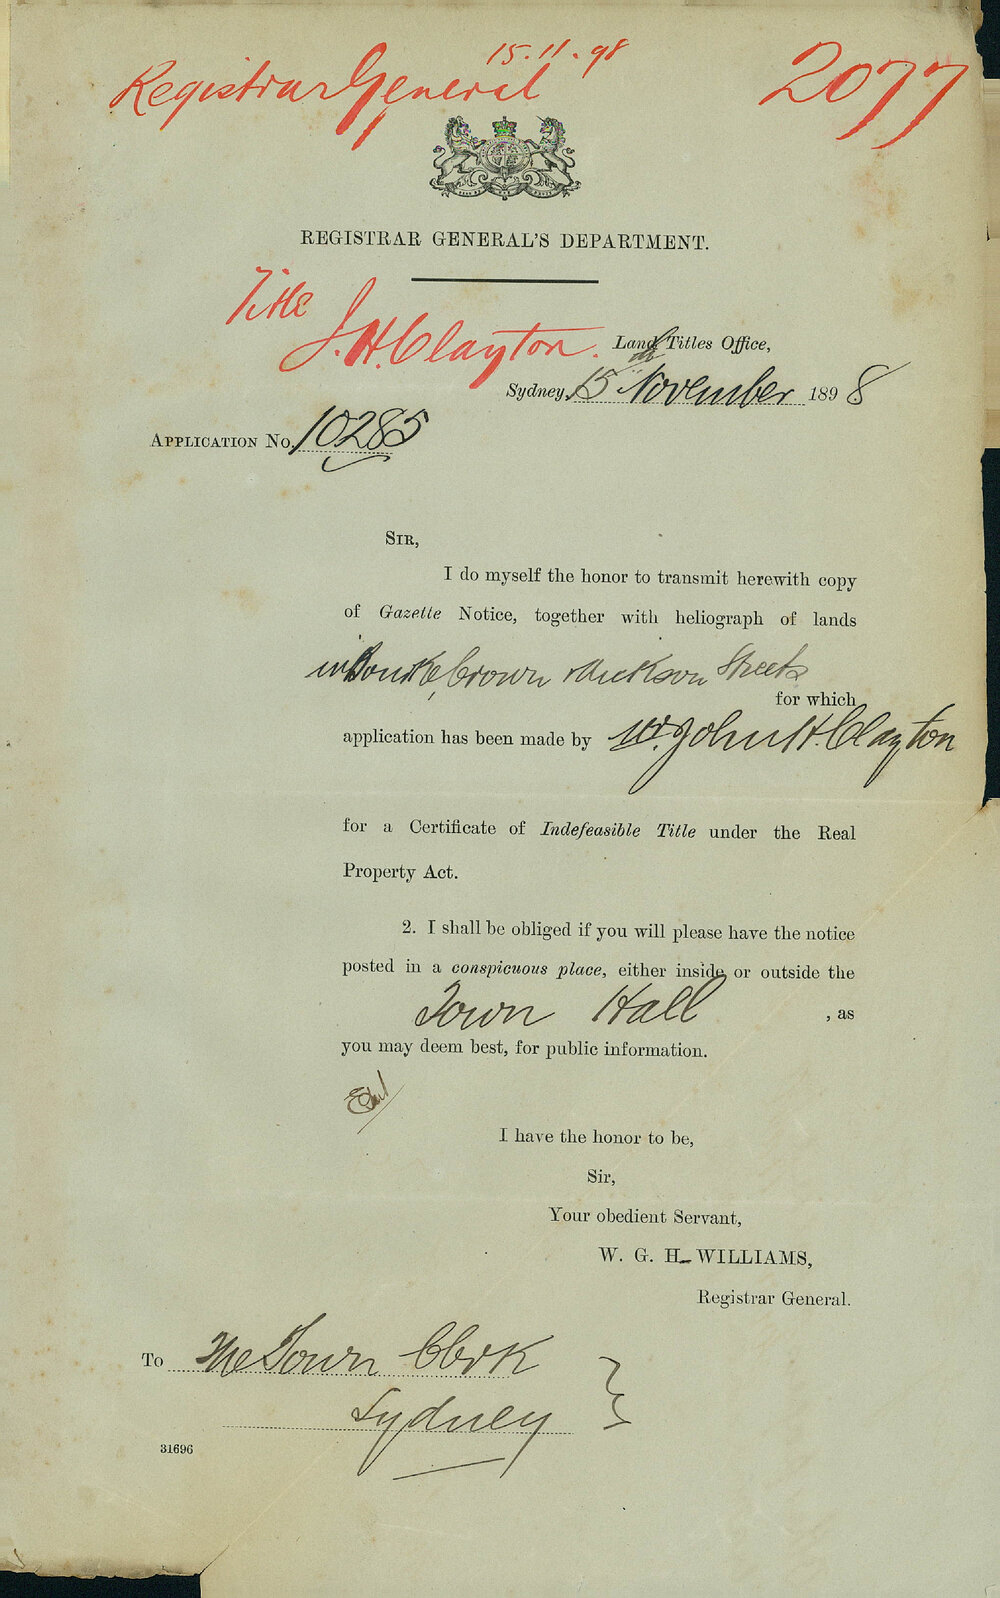 15.11.98
Registrar General
2077
REGISTRAR GENERAL'S DEPARTMENT.
Title
J. H. Clayton.
Land Titles Office,
Sydney, 15th November 1898
APPLICATION No. 10285
SIR,
I do myself the honor to transmit herewith copy
of Gazette Notice, together with heliograph of lands
in Bourke, Crown & Dickson Streets
for which
application has been made by Mr. John H. Clayton
for a Certificate of Indefeasible Title under the Real
Property Act.
2. I shall be obliged if you will please have the notice
posted in a conspicuous place, either inside or outside the
Town Hall , as
you may deem best, for public information.
I have the honor to be,
Sir,
Your obedient Servant,
W. G. H. WILLIAMS,
Registrar General.
To The Town Clerk
Sydney
31696